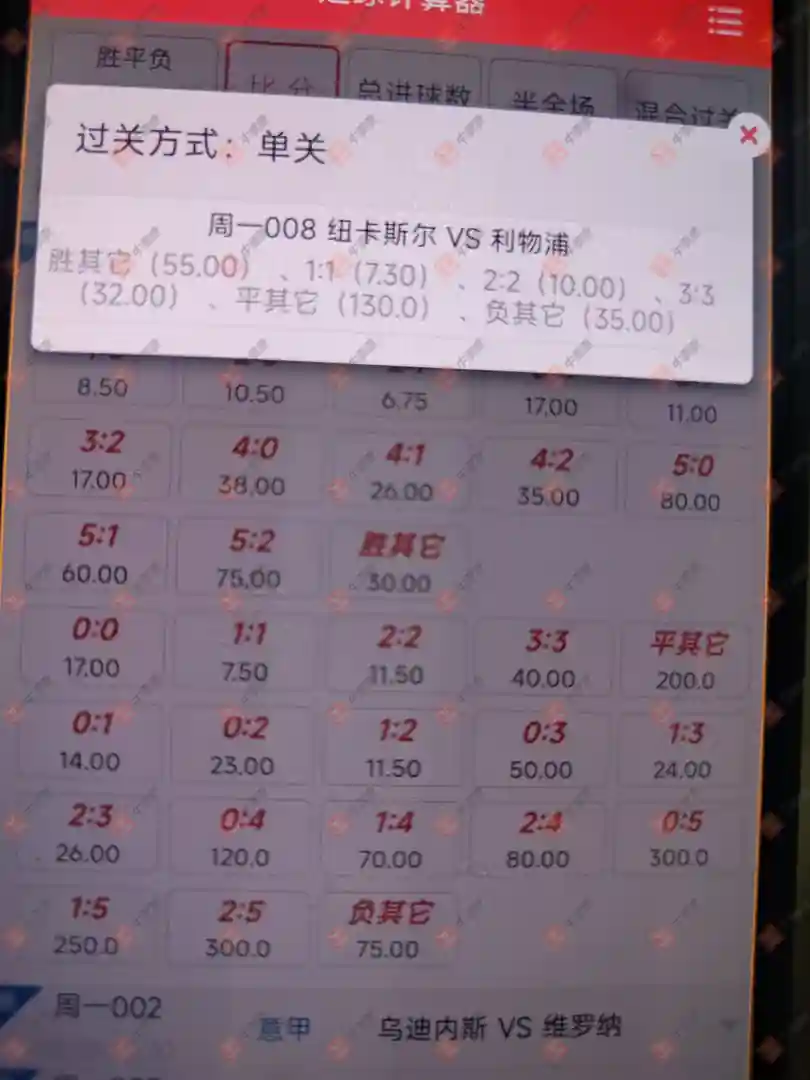 胜平负
比分
总进球数
半全场
混合过关
过关方式：单关
周一008 纽卡斯尔 VS 利物浦
胜其它（55.00）、1:1（7.30）、2:2（10.00）、3:3
（32.00）、平其它（130.0）、负其它（35.00）
8.50 10.50 6.75 17.00 11.00
3:2 4:0 4:1 4:2 5:0
17.00 38.00 26.00 35.00 80.00
5:1 5:2 胜其它
60.00 75.00 30.00
0:0 1:1 2:2 3:3 平其它
17.00 7.50 11.50 40.00 200.0
0:1 0:2 1:2 0:3 1:3
14.00 23.00 11.50 50.00 24.00
2:3 0:4 1:4 2:4 0:5
26.00 120.0 70.00 80.00 300.0
1:5 2:5 负其它
250.0 300.0 75.00
周一002
意甲
乌迪内斯 VS 维罗纳